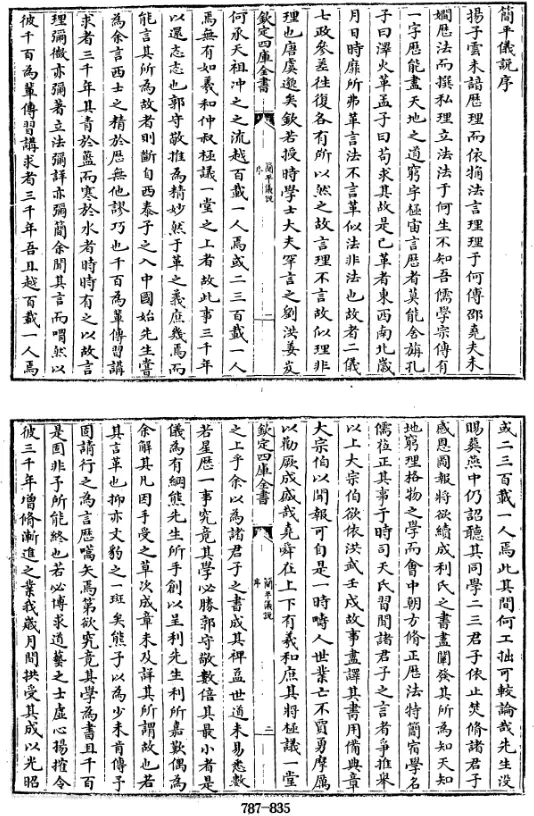 簡平儀說序
揚子雲未諳厯理而依摛法言理理于何傳邵堯夫未
嫺厯法而撰私理立法法于何生不知吾儒學宗傳有
一字厯能盡天地之道窮宇極宙言厯者莫能舍旃孔
子曰澤火革孟子曰苟求其故是已革者東西南北歲
月日時靡所弗革言法不言革似法非法也故者二儀
七政參差往復各有所以然之故言理不言故似理非
理也唐虞邈矣欽若授時學士大夫罕言之劉洪姜岌
欽定四庫全書
簡平儀說
序
一
何承天祖冲之之流越百載一人焉或二三百載一人
焉無有如羲和仲叔極議一堂之上者故此事三千年
以還忞忞也郭守敬推為精妙然于革之義庶幾焉而
能言其所為故者則斷自西泰子之入中國始先生嘗
為余言西士之精於厯無他謬巧也千百為軰傳習講
求者三千年其青於藍而寒於水者時時有之以故言
理彌微亦彌著立法彌詳亦彌簡余聞其言而喟然以
彼千百為軰傳習講求者三千年吾且越百載一人焉
或二三百載一人焉此其間何工拙可較論哉先生沒
賜葬燕中仍詔聽其同學二三君子依止焚修諸君子
感恩圖報將欲續成利氏之書盡闡發其所為知天知
地窮理格物之學而會中朝方修正厯法特簡宿學名
儒蒞正其事于時司天氏習聞諸君子之言者爭推舉
以上大宗伯欲依洪武壬戌故事盡譯其書用備典章
大宗伯以聞報可自是一時疇人世業亡不賈勇摩厲
以勒厥成盛哉堯舜在上下有羲和庶其將極議一堂
欽定四庫全書
簡平儀說
序
二
之上乎余以為諸君子之書成其裨益世道未易悉數
若星厯一事究竟其學必勝郭守敬數倍其最小者是
儀為有綱熊先生所手創以呈利先生利所嘉歎偶為
余解其凡因手受之草次成章未及詳其所謂故也若
其言革也抑亦文豹之一斑矣熊子以為少未肯傳予
固請行之為言厯嚆矢焉第欲究竟其學為書且千百
是固非予所能終也若必博求道藝之士虛心揚搉令
彼三千年增修漸進之業我歲月間拱受其成以光昭
787-835